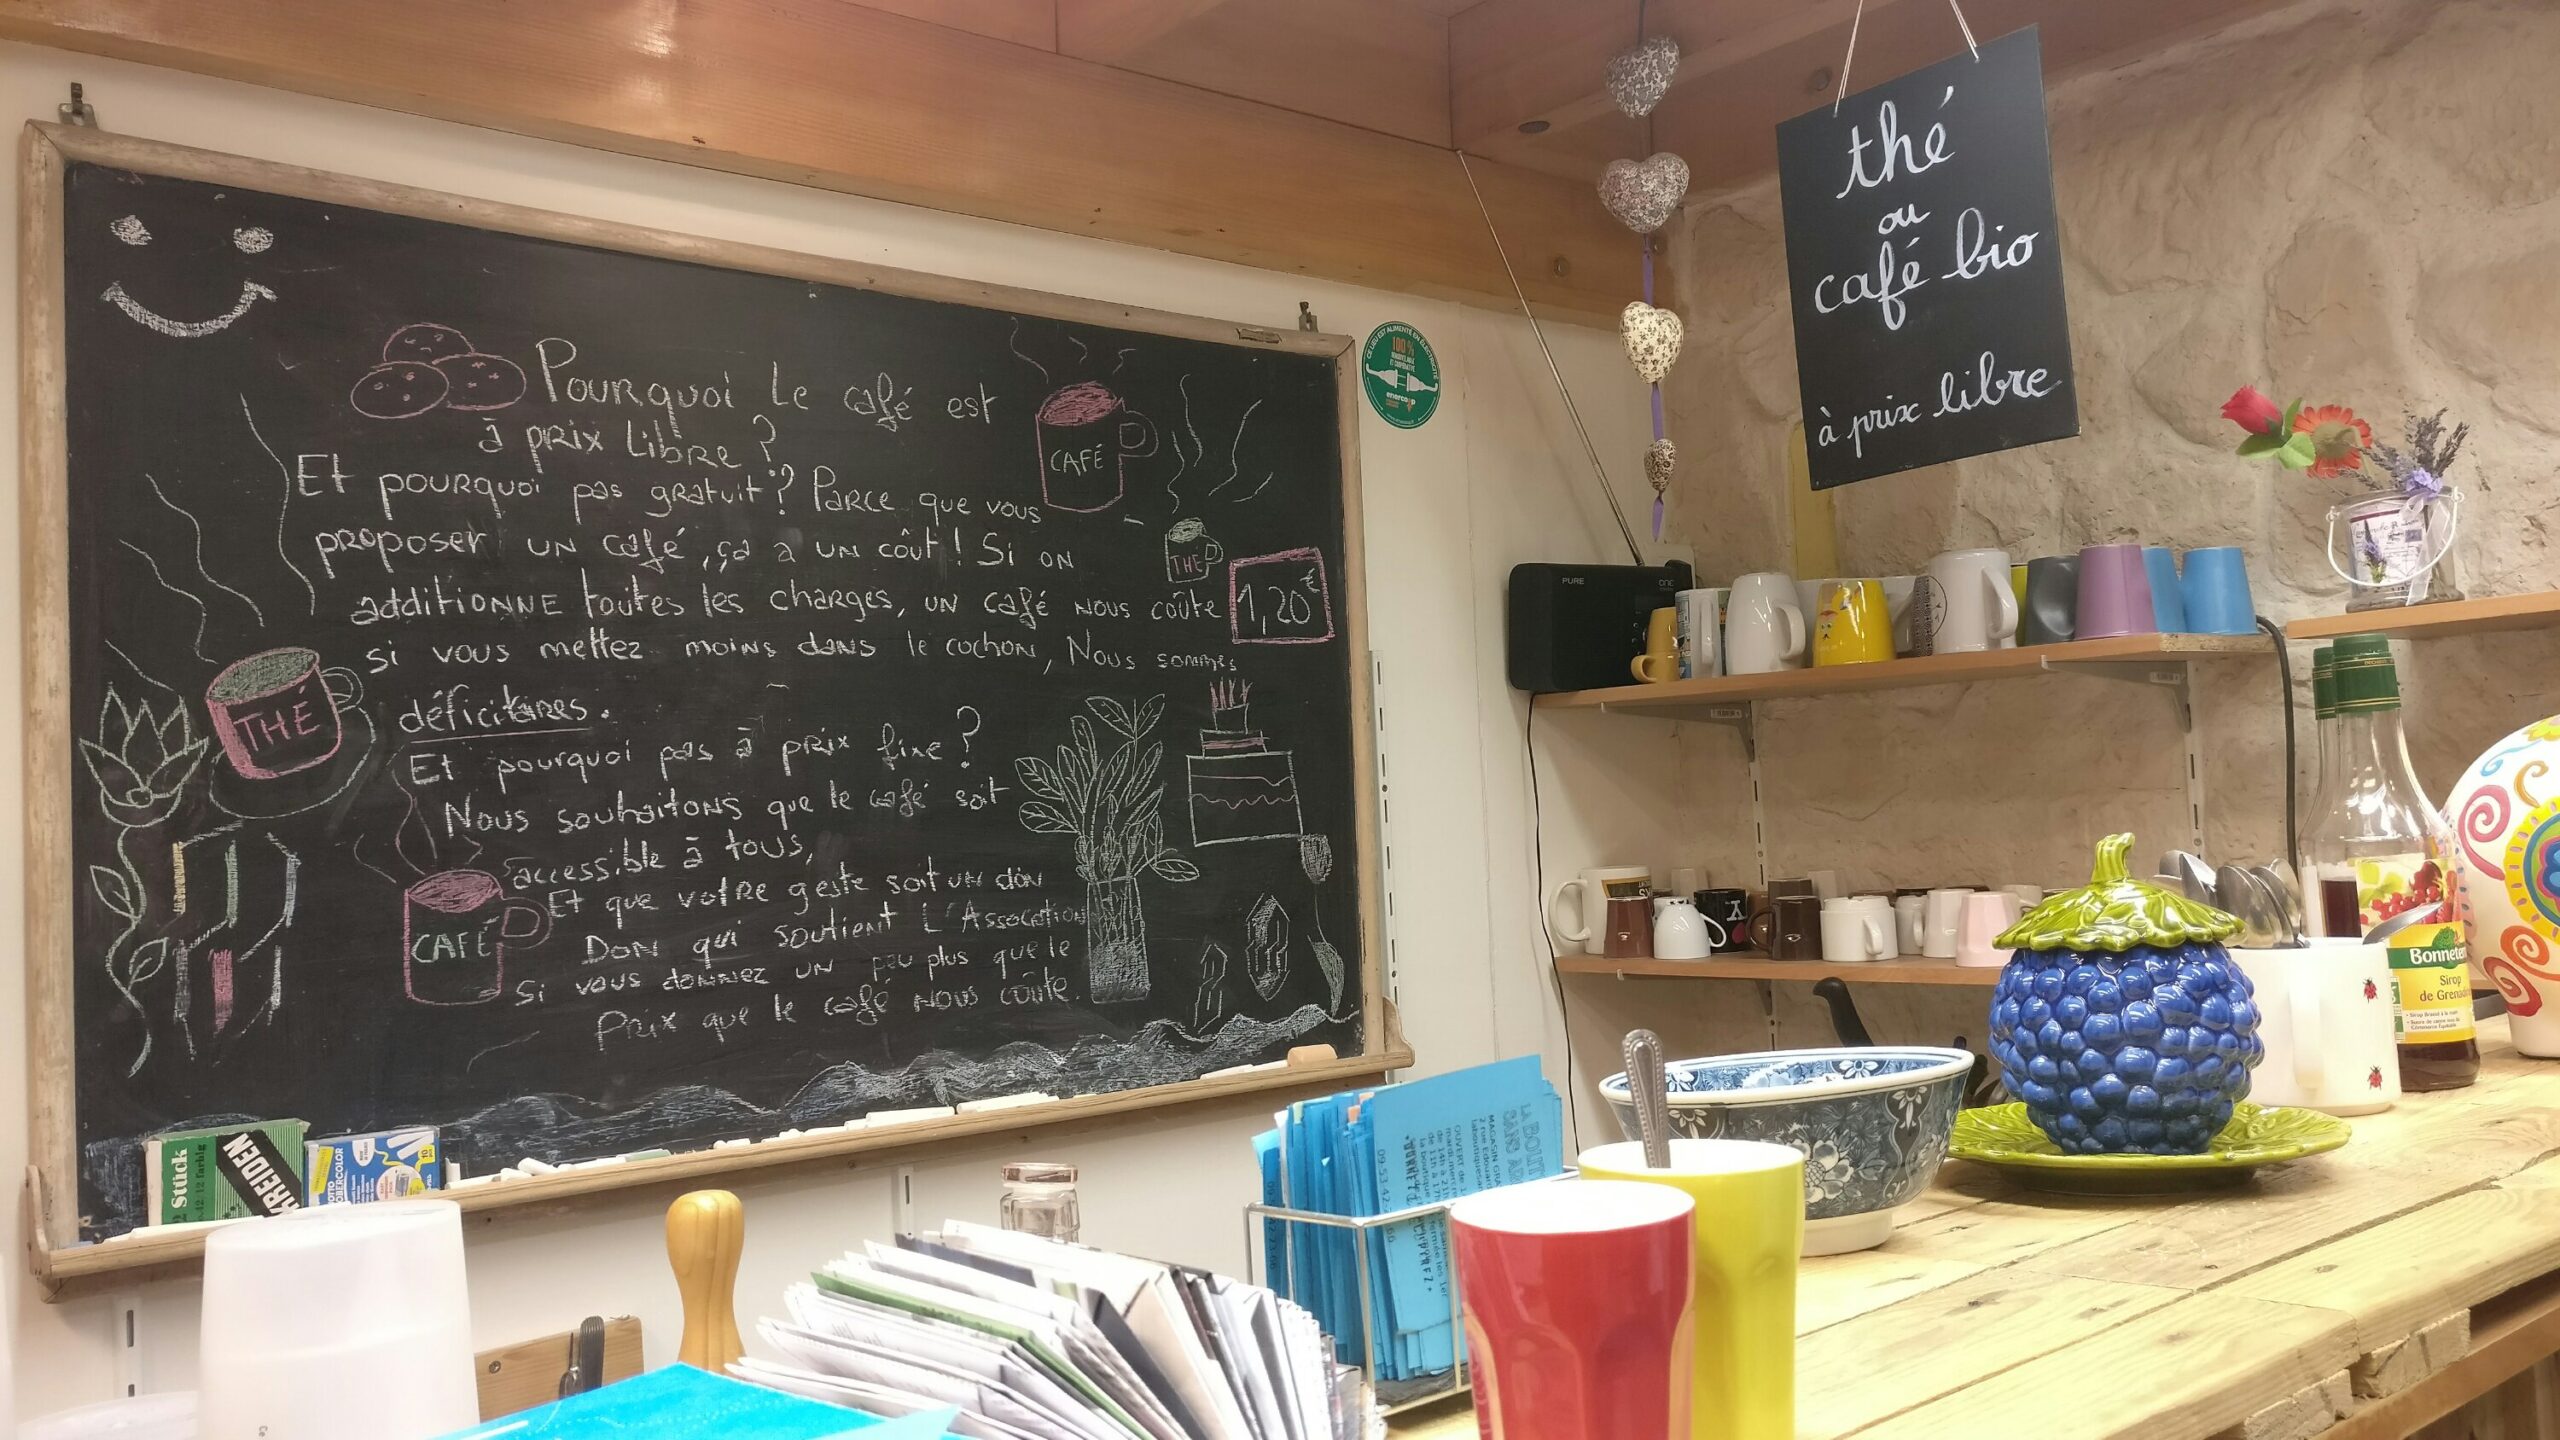 Pourquoi le café est
à prix libre ?
Et pourquoi pas gratuit ? Parce que vous
proposer un café, ça a un coût ! Si on
additionne toutes les charges, un café nous coûte 1,20€
si vous mettez moins dans le cochon, Nous sommes
déficitaires.
Et pourquoi pas à prix fixe ?
Nous souhaitons que le café soit
accessible à tous,
Et que votre geste soit un don
Don qui soutient L'Association
Si vous donniez un peu plus que le
Prix que le café nous coûte.
CAFÉ
THÉ
THÉ
CAFÉ
thé
ou
café bio
à prix libre
CE LIEU EST ALIMENTÉ EN ÉLECTRICITÉ
100 %
RENOUVELABLE
ET COOPÉRATIVE
enercoop
PURE
ONE
Bonneterre
Sirop
de Grenadine
Stück
12 farbig
KREIDEN
ROBERCOLOR
LA BOUTIQUE
SANS
MAGASIN
2 rue
OUVERT